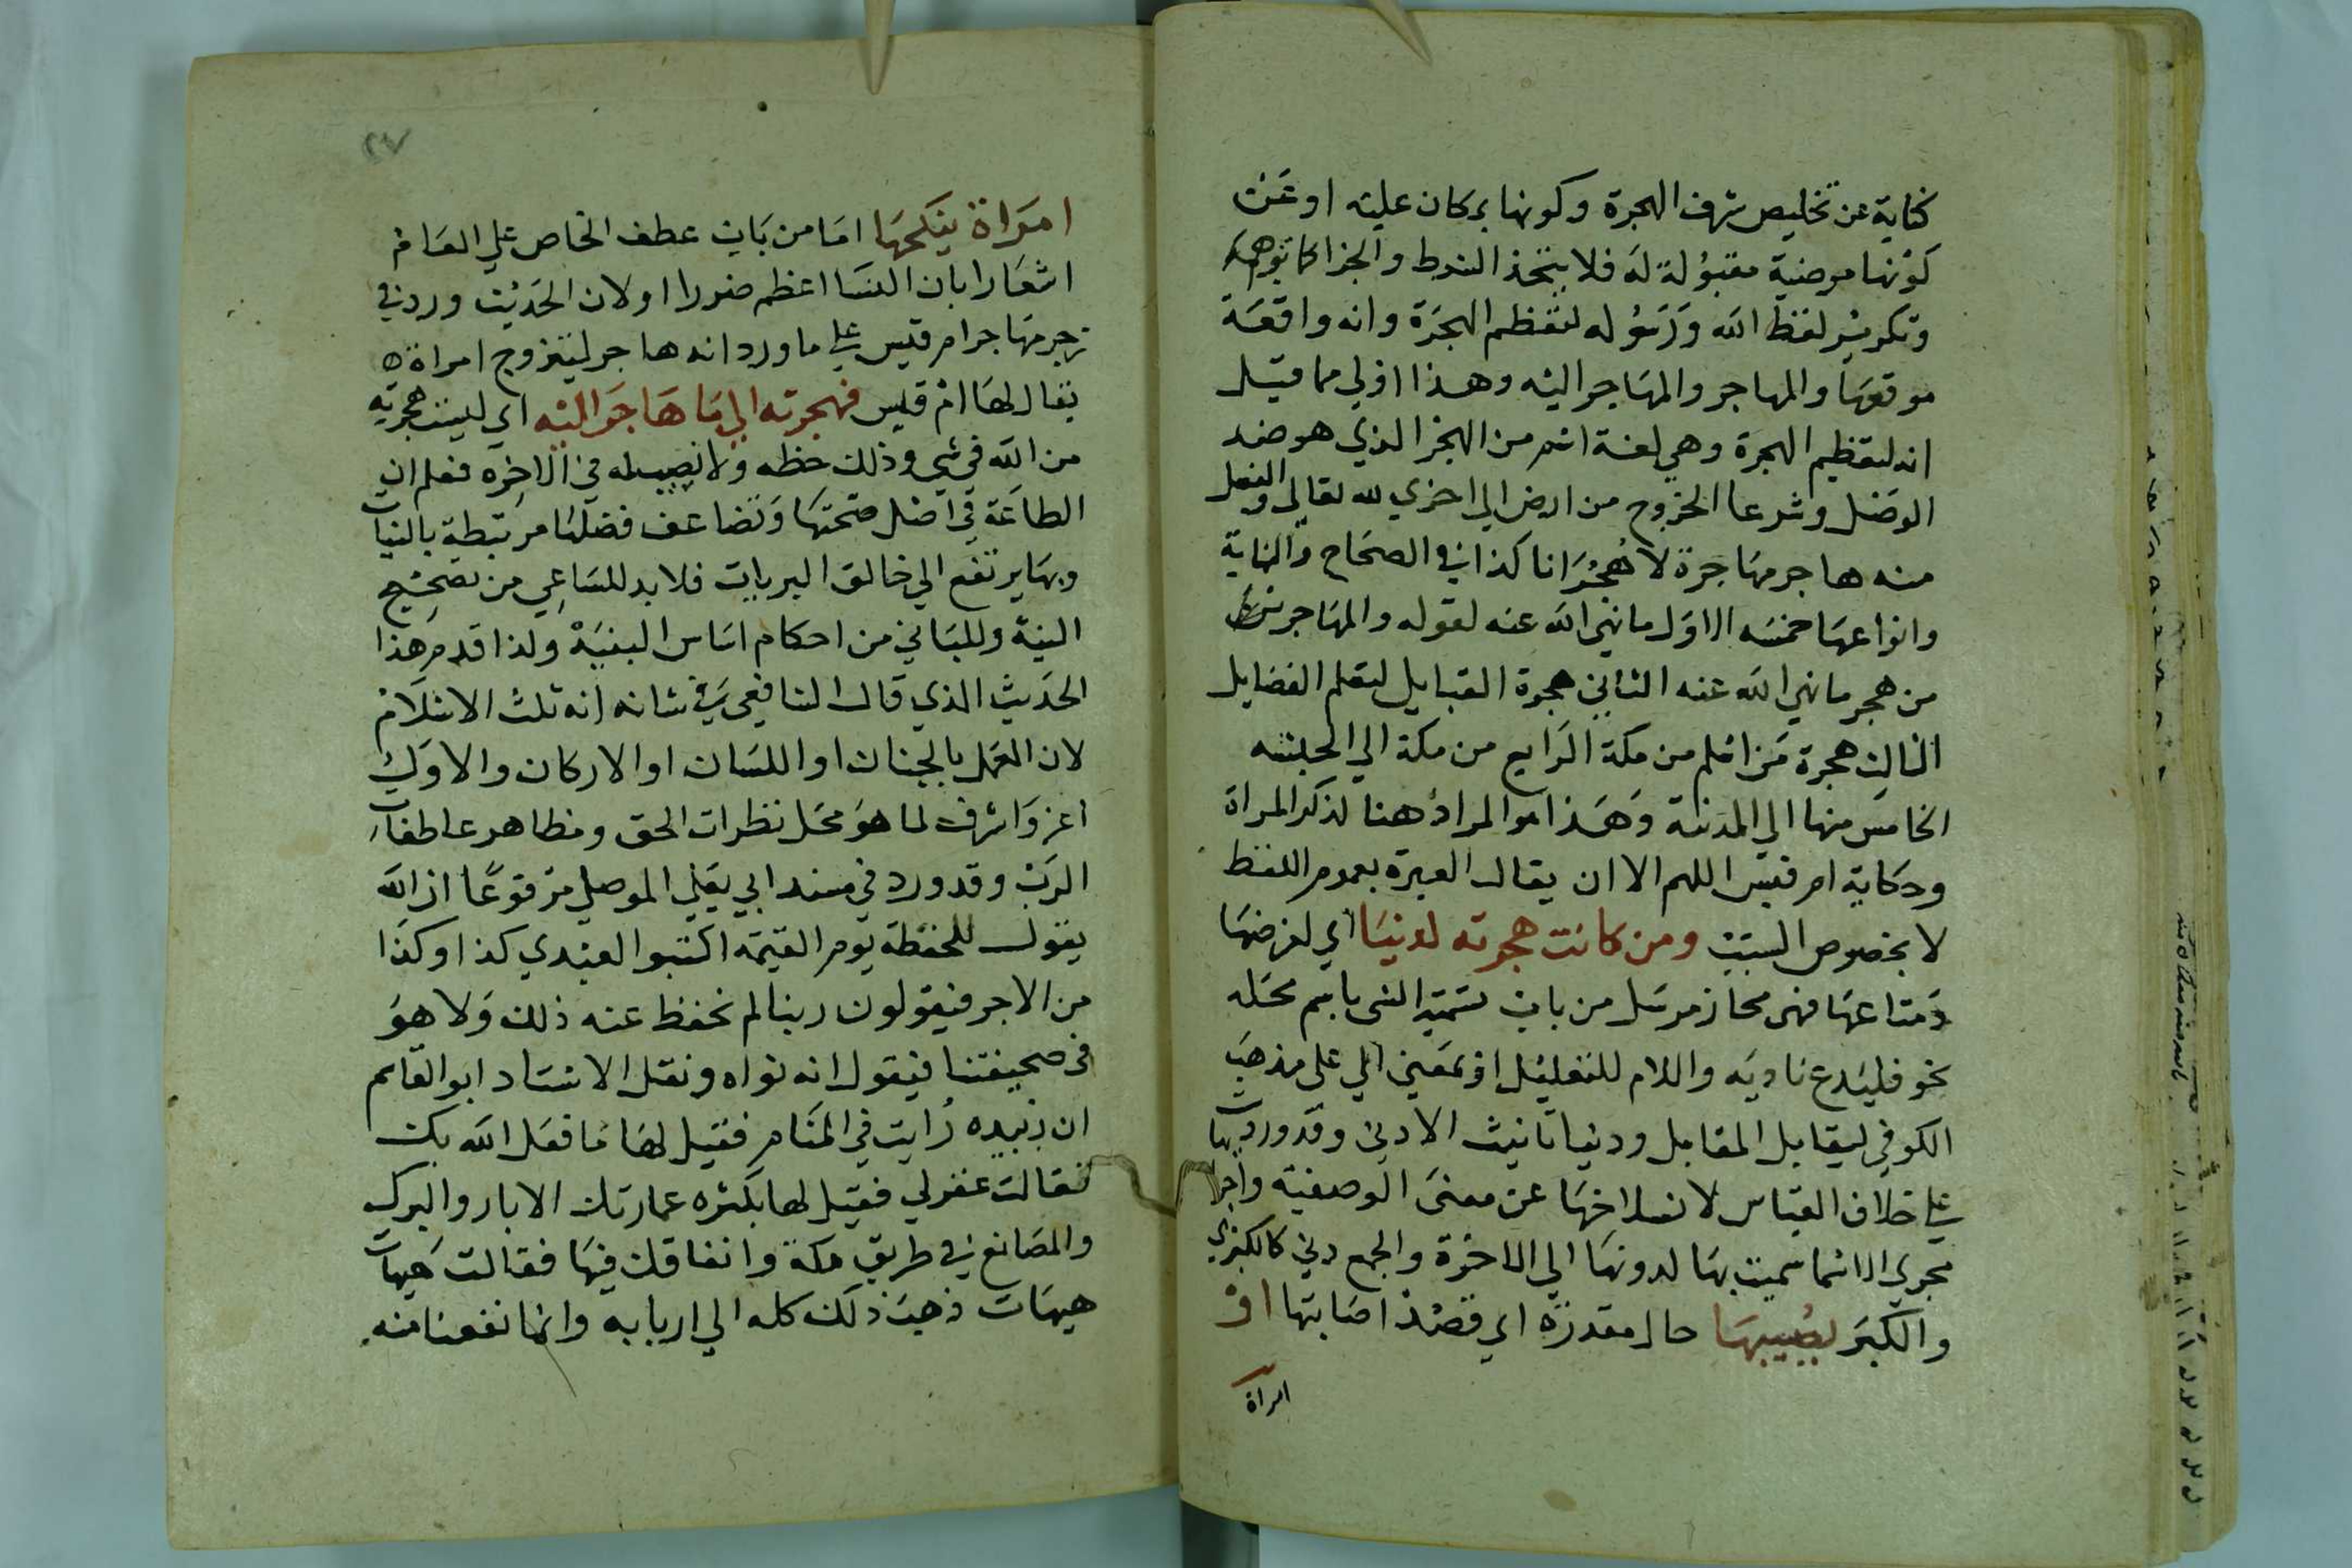 كناية عن تخليص شرف الهجرة وكونها بركان عليه او عَن
كونها مرضية مقبولة له فلا يتخذ الشرط والجزا كما توهم
وتكرير لفظ الله وَرَسُوله لتعظم الهجرَة وانه واقعَة
موقعهَا والمهاجر والمهَاجر اليْه وهذا اولي مما قيل
انه لتعظيم الهجرة وهي لغة اسم من الهجر الذي هو ضد
الوصَل وشرعا الخروج من ارض الي اخري لله تعالي والفعل
منه هاجر مهَاجرة لا هُجْرَانا كذا في الصحَاح والنهاية
وانواعهَا خمسَه الاوَل ما نهي الله عنه لقوله والمهَاجر
من هجر ما نهي الله عنه الثاني هجرة القبايل لتعلم الفضايل
الثالث هجرة مَن اسْلم من مكة الرَابع من مكة الي الحبشه
الخامسَ منها الي المدينة وَهَذا هو المراد هنا لذكر المراة
وحكاية ام قيس اللهم الا ان يقال العبرة بعموم اللفظ
لا بخصوص السَبَب ومن كانت هجرته لدنيَا اي لغرضهَا
وَمتاعهَا فهي مجاز مرسَل من باب تسَمية الشي باسم محَله
نحو فليَدع ناديَه واللام للتعليْل اوْ بمَعني الي على مذهَب
الكوفي ليقابل المقابل ودنيا تانيث الادني وقد ورد بها
علي خلاف القياس لانسلاخهَا عن معنىَ الوصفية واجرا
مجري الاسْما سميت بهَا لدونهَا الي الاخرَة والجمع دني كالكبري
والكبَر يصُيبهَا حال مقدرَه اي قصْد اصَابتها اوْ
امراة
٢٧
امرَاة ينكحهَا امَا من بَاب عطف الخاص علي العَام
اشعَارا بان النسَا اعظم ضررا او لان الحَديْث ورد في
زجر مهَاجر ام قيس علي ما ورد انه هاجر ليتزوج امراة ه
يقال لهَا امْ قيس فهجرته الي مَا هَاجَر اليْه اي ليست هجرته
من الله في شي وذلك حظه ولا نصيب له في الاخِره فعلم ان
الطاعَة في اصْل صحتهَا وَتضاعف فضلهَا مرتبطة بالنيات
وبهَا يرتفع الي خالق البريات فلا بد للسَاعِي من تصحيْح
النية وللبَاني من احكام اسَاس البنيَةْ ولذا قدم هذا
الحَديث الذي قال الشافعي في شانه انه ثلث الاسْلَام
لان العَمل بالجنان او اللسَان او الاركان والاوَل
اعز وَاشرف لما هوَ محَل نظرات الحق ومظاهر عاطفات
الرَب وقد ورد في مسند ابي يَعْلي الموصلي مَرفوعًا ان الله
يقول للحفظة يوم القيمَة اكتبوا لعبْدي كذا وكذَا
من الاجر فيقولون ربنا لم نحفظ عنه ذلك وَلا هوَ
في صحيفتنا فيقول انه نواه ونقل الاسْتَاد ابو القَاسم
ان زبيده رُايت في المنَام فقيل لهَا مَا فعَل الله بك
فقالت غفر لي فقيل لها بكثره عمارتك الابار والبرك
والمصَانع في طريق مكة وانفاقك فيهَا فقالت هيهات
هيهَات ذهبَ ذلك كله الي اربابه وانما نفعنا منه